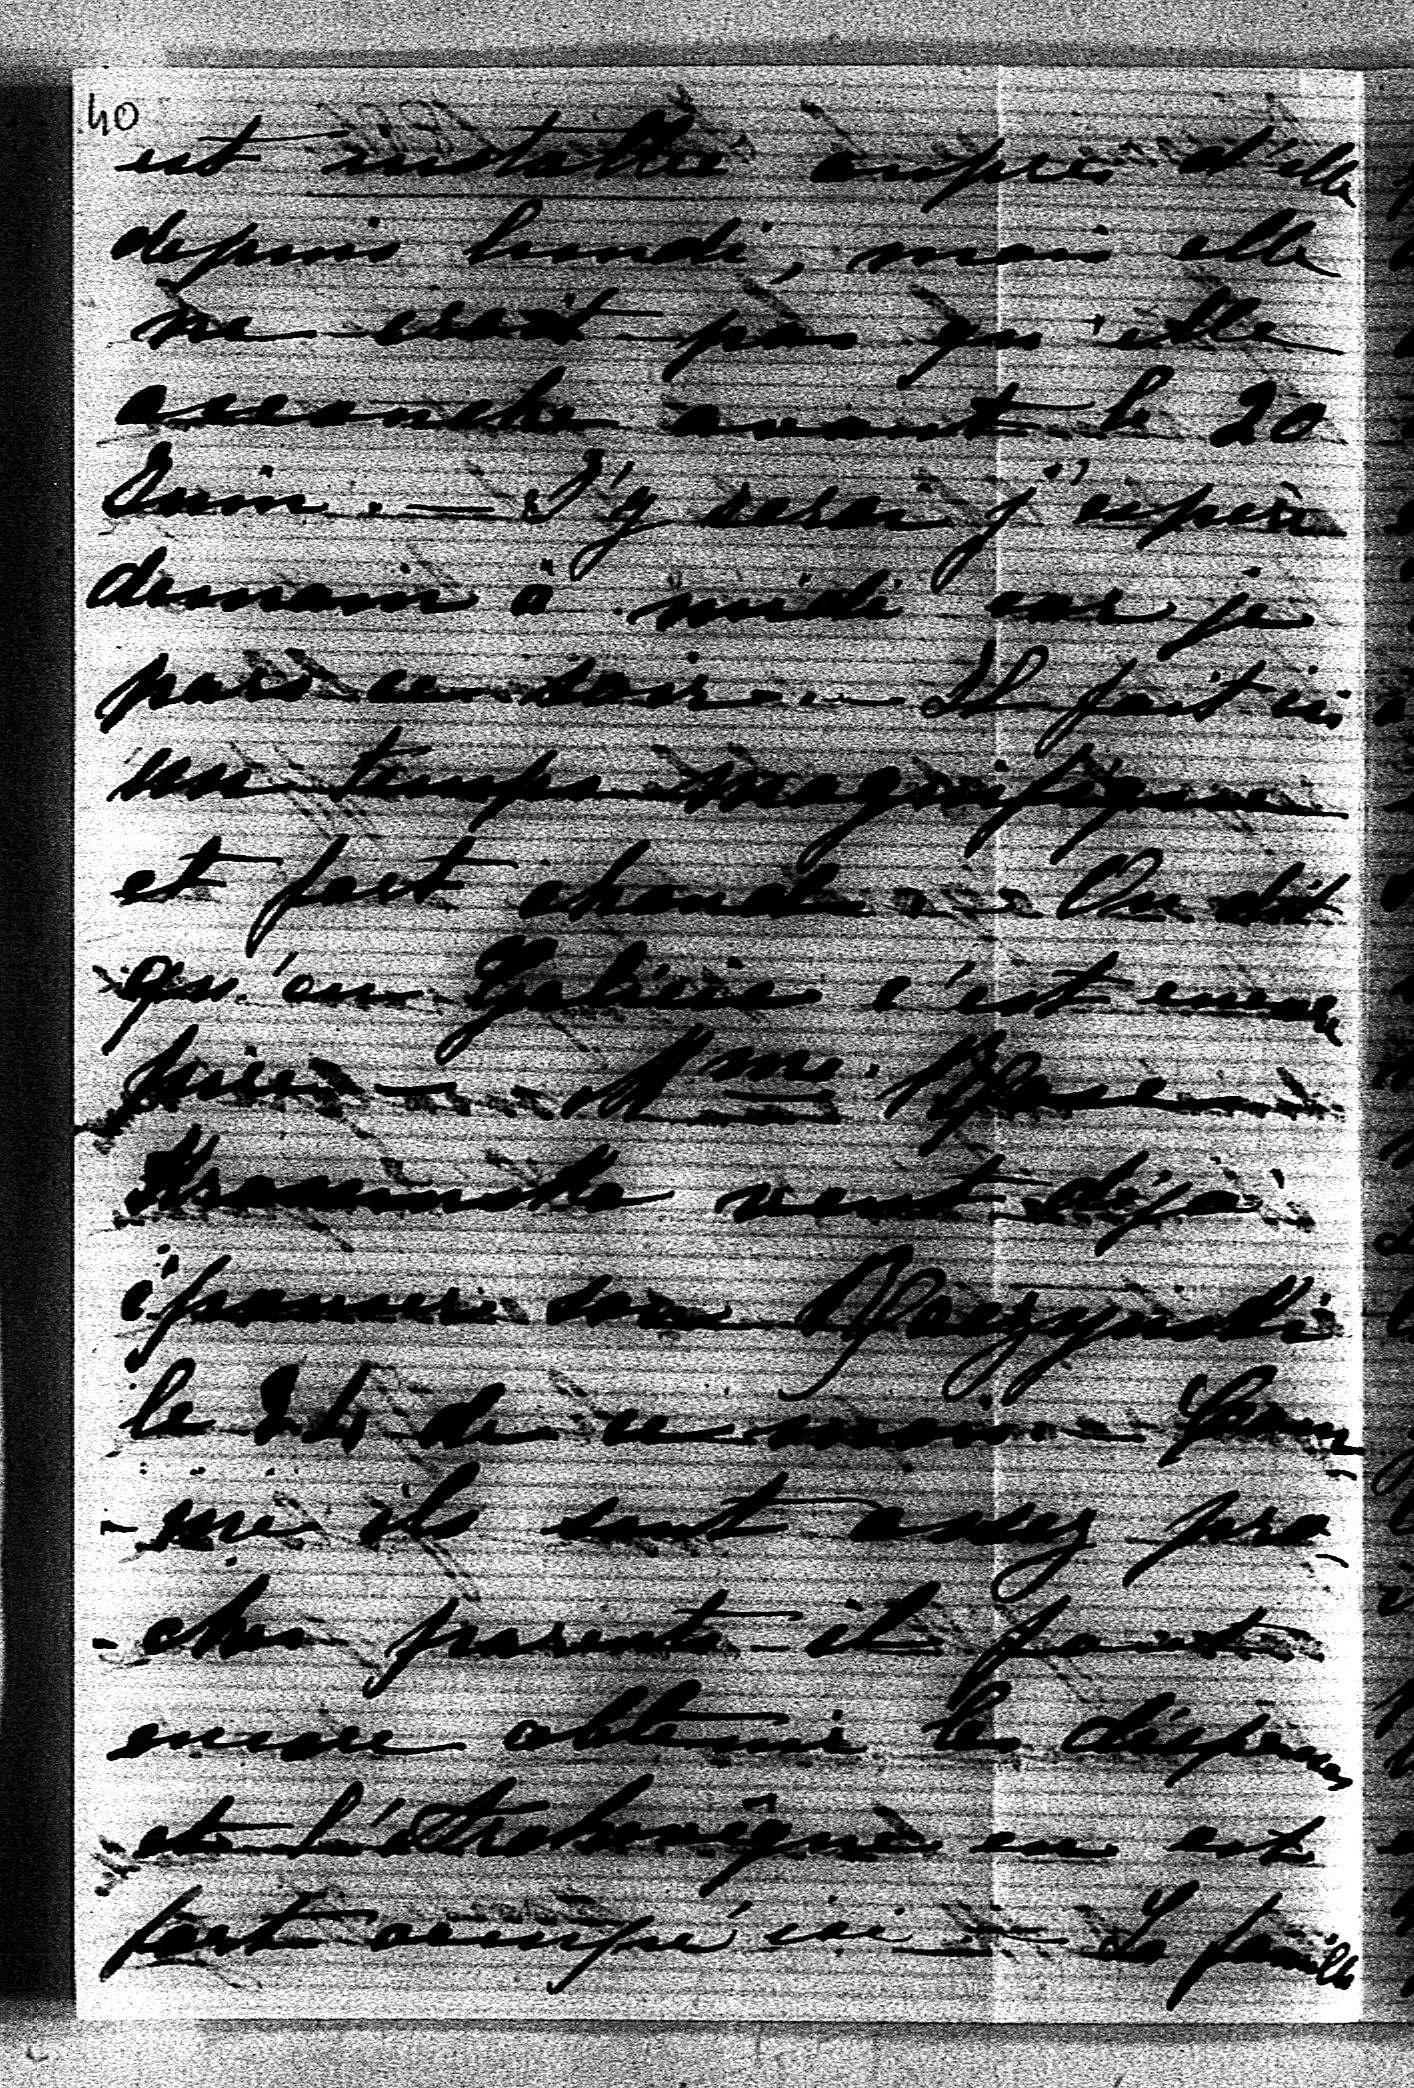 40
est installée auprès d'elle
depuis lundi, mais elle
ne croit pas qu'elle
accouche avant le 20
Juin. — J'y serai j'espère
demain à midi car je
pars ce soir. — Il fait ici
un temps magnifique
et fort chaud. — On dit
qu'en Galicie c'est encore
pire — Mme. Rose
Krasinska veut déjà
épouser son Raczynski
le 24 de ce mois. — Com
-me ils sont assez pro
-ches parents il faut
encore obtenir les dispenses
et l'
fort occupé ici — La famille